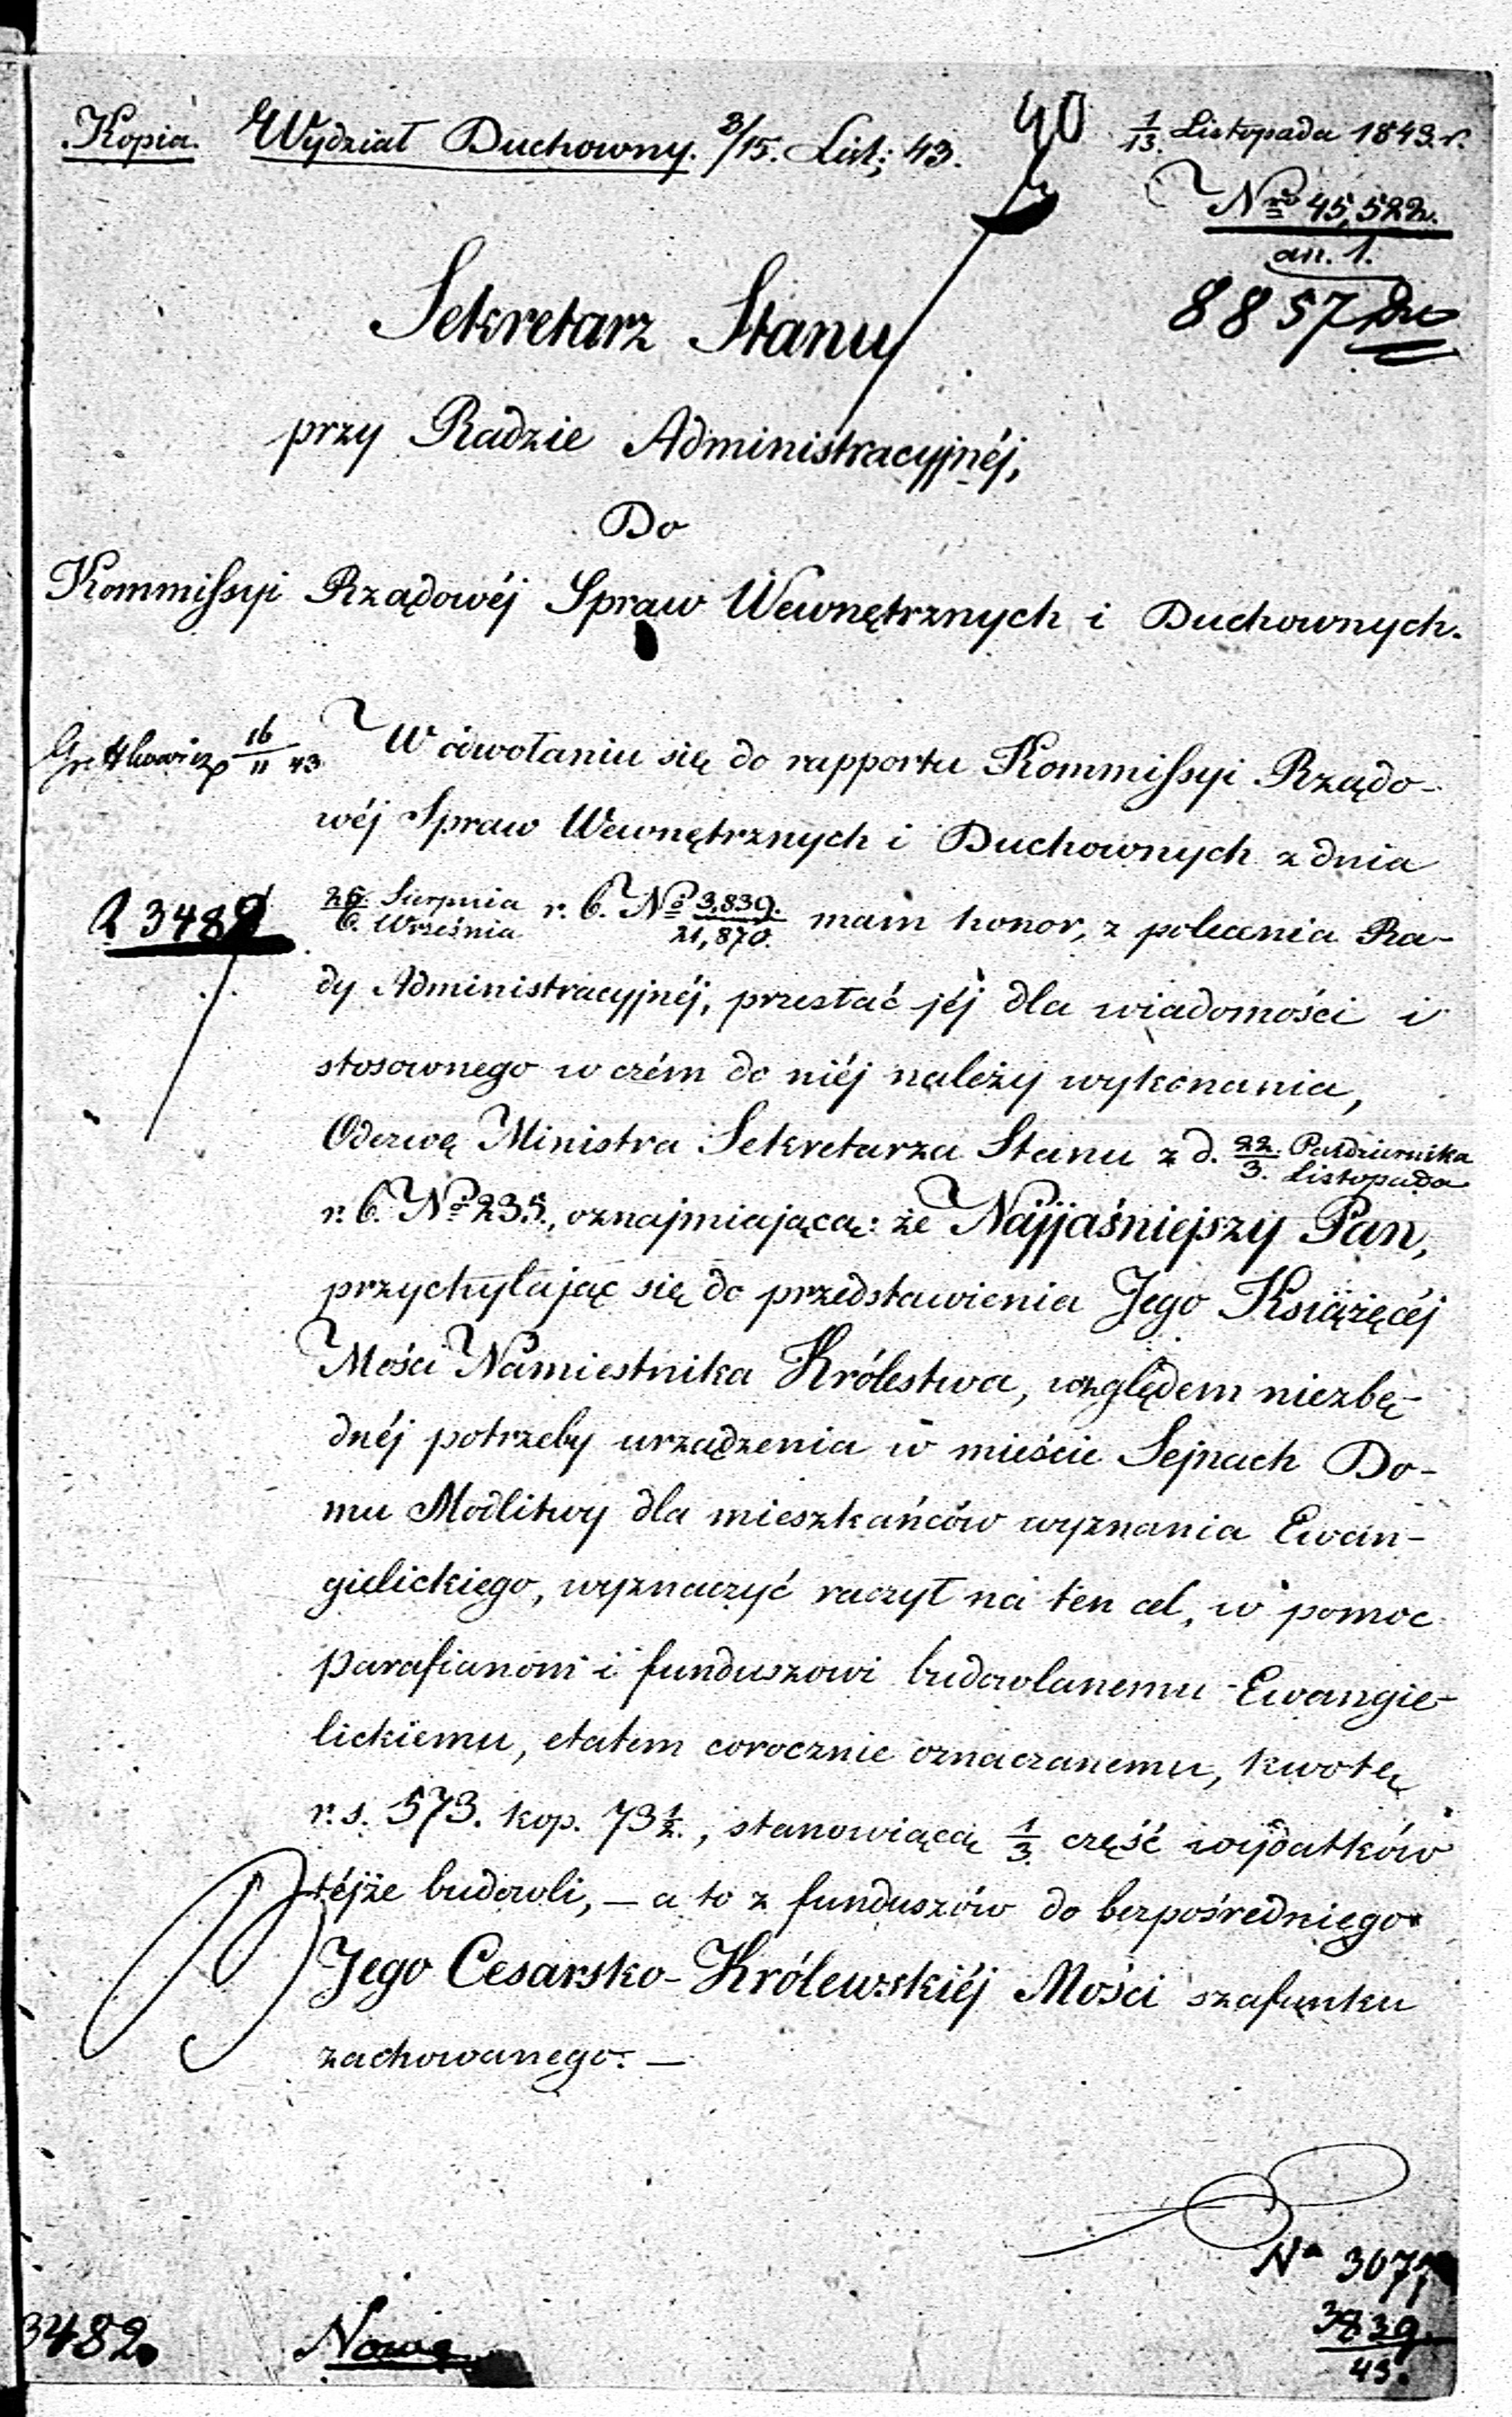 Kopia. Wydział Duchowny. 3/15. List; 43. 40 1/13. Listopada 1843. r.
Nro 45,522.
an. 1.
8857
Sekretarz Stanu
przy Radzie Administracyjnéj,
Do
Kommissyi Rządowéj Spraw Wewnętrznych i Duchownych.
16/11 43
W odwołaniu się do rapportu Kommissyi Rządo-
wéj Spraw Wewnętrznych i Duchownych z dnia
3482
25. Sierpnia/6. Września r. b. No 3,839./21,870. mam honor, z polecenia Ra-
dy Administracyjnéj, przesłać jéj dla wiadomości i
stosownego w czém do niéj należy wykonania,
Odezwę Ministra Sekretarza Stanu z d. 22. Października/3. Listopada
r. b. No 235., oznajmiającą: że Najjaśniejszy Pan,
przychylając się do przedstawienia Jego Książęcéj
Mości Namiestnika Królestwa, względem niezbę-
dnéj potrzeby urządzenia w mieście Sejnach Do-
mu Modlitwy dla mieszkańców wyznania Ewan-
gielickiego, wyznaczyć raczył na ten cel, w pomoc
parafianom i funduszowi budowlanemu Ewangie-
lickiemu, etatem corocznie oznaczanemu, kwotę
r. s. 573. kop. 73 1/2., stanowiącą 1/3. część wydatków
téjże budowli, — a to z funduszów do bezpośredniego
Jego Cesarsko-Królewskiéj Mości szafunku
zachowanego. —
No 3071
3839.
43.
3482. Nowe